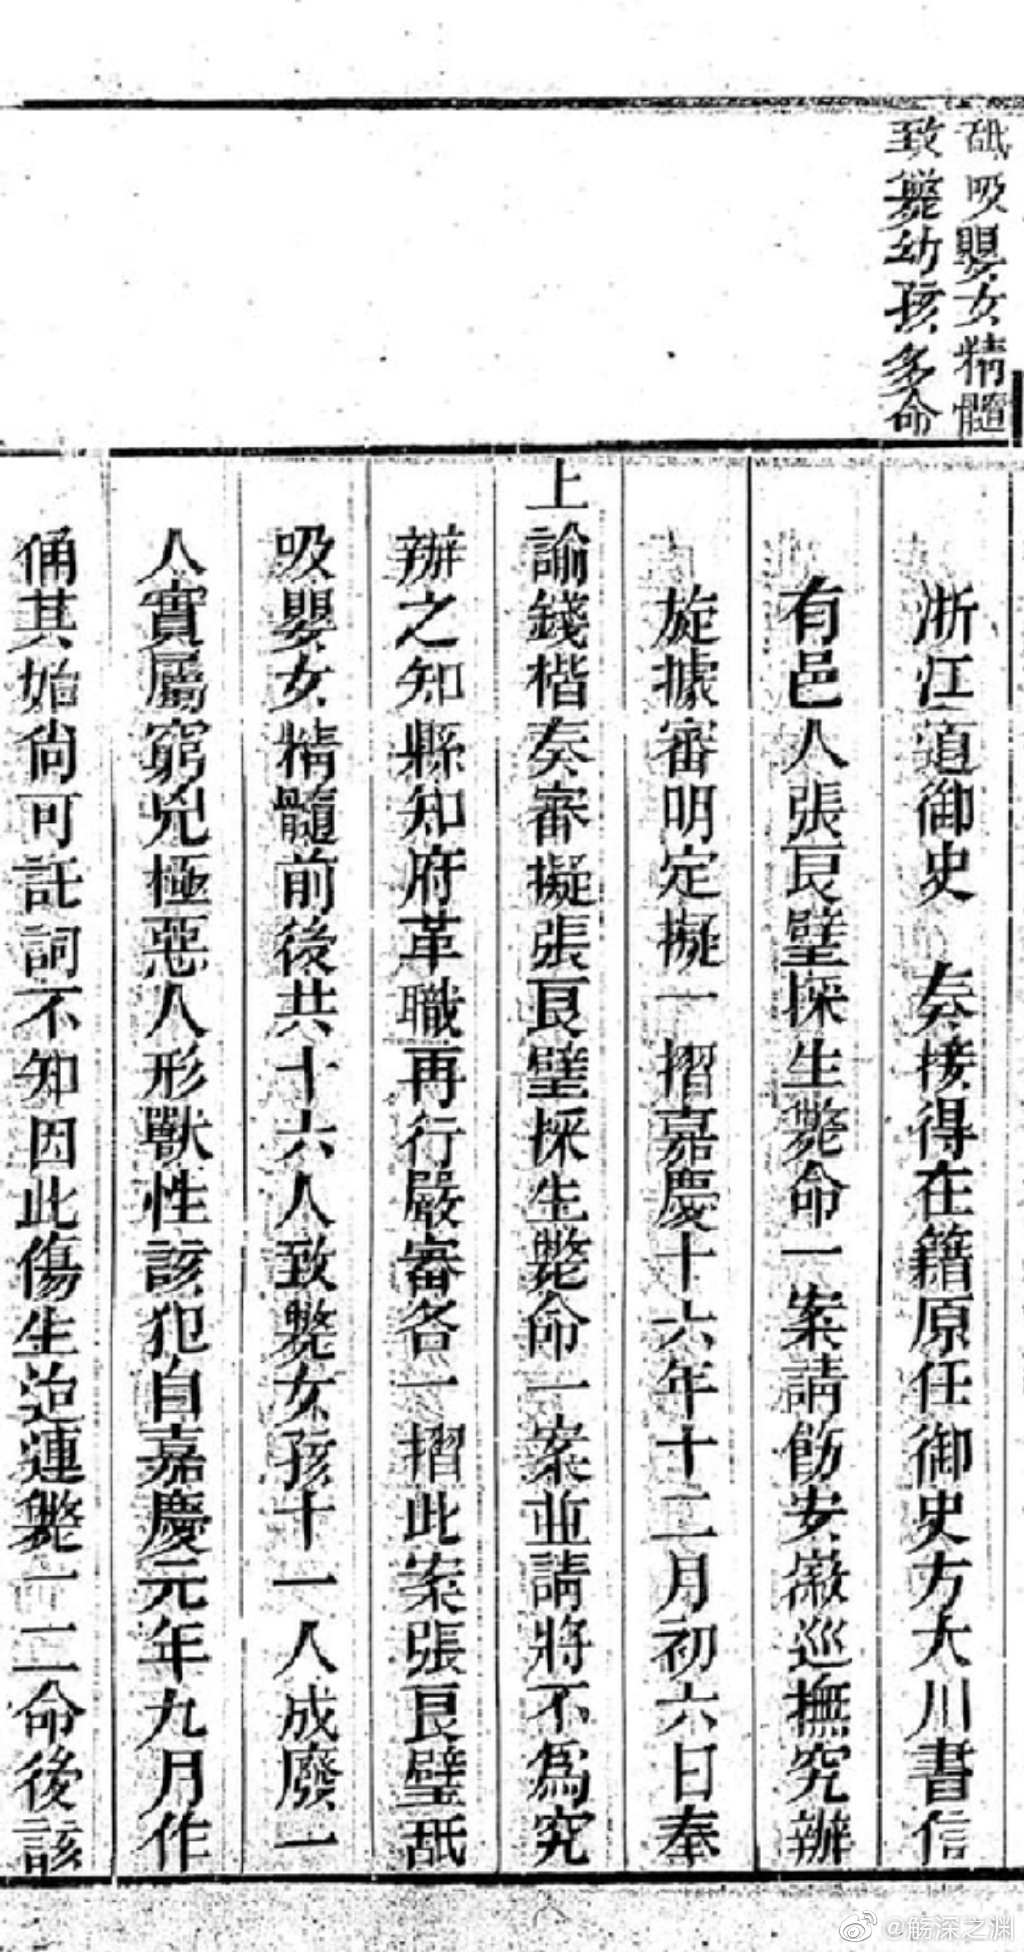 舐吸嬰女精髓
致斃幼孩多命
浙江道御史 奏接得在籍原任御史方大川書信
有邑人張良璧採生斃命一案請飭安徽巡撫究辦
旋據審明定擬一摺嘉慶十六年十二月初六日奉
上諭錢楷奏審擬張良璧採生斃命一案並請將不為究
辦之知縣知府革職再行嚴審各一摺此案張良璧舐
吸嬰女精髓前後共十六人致斃女孩十一人成廢一
人實屬窮兇極惡人形獸性該犯自嘉慶元年九月作
俑其始尚可託詞不知因此傷生迨連斃一二命後該
@觞深之渊